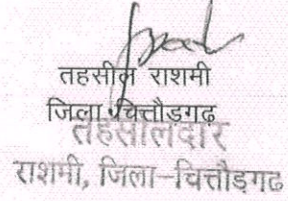 तहसील राशमी
जिला चित्तौड़गढ़
तहसीलदार
राशमी, जिला-चित्तौड़गढ